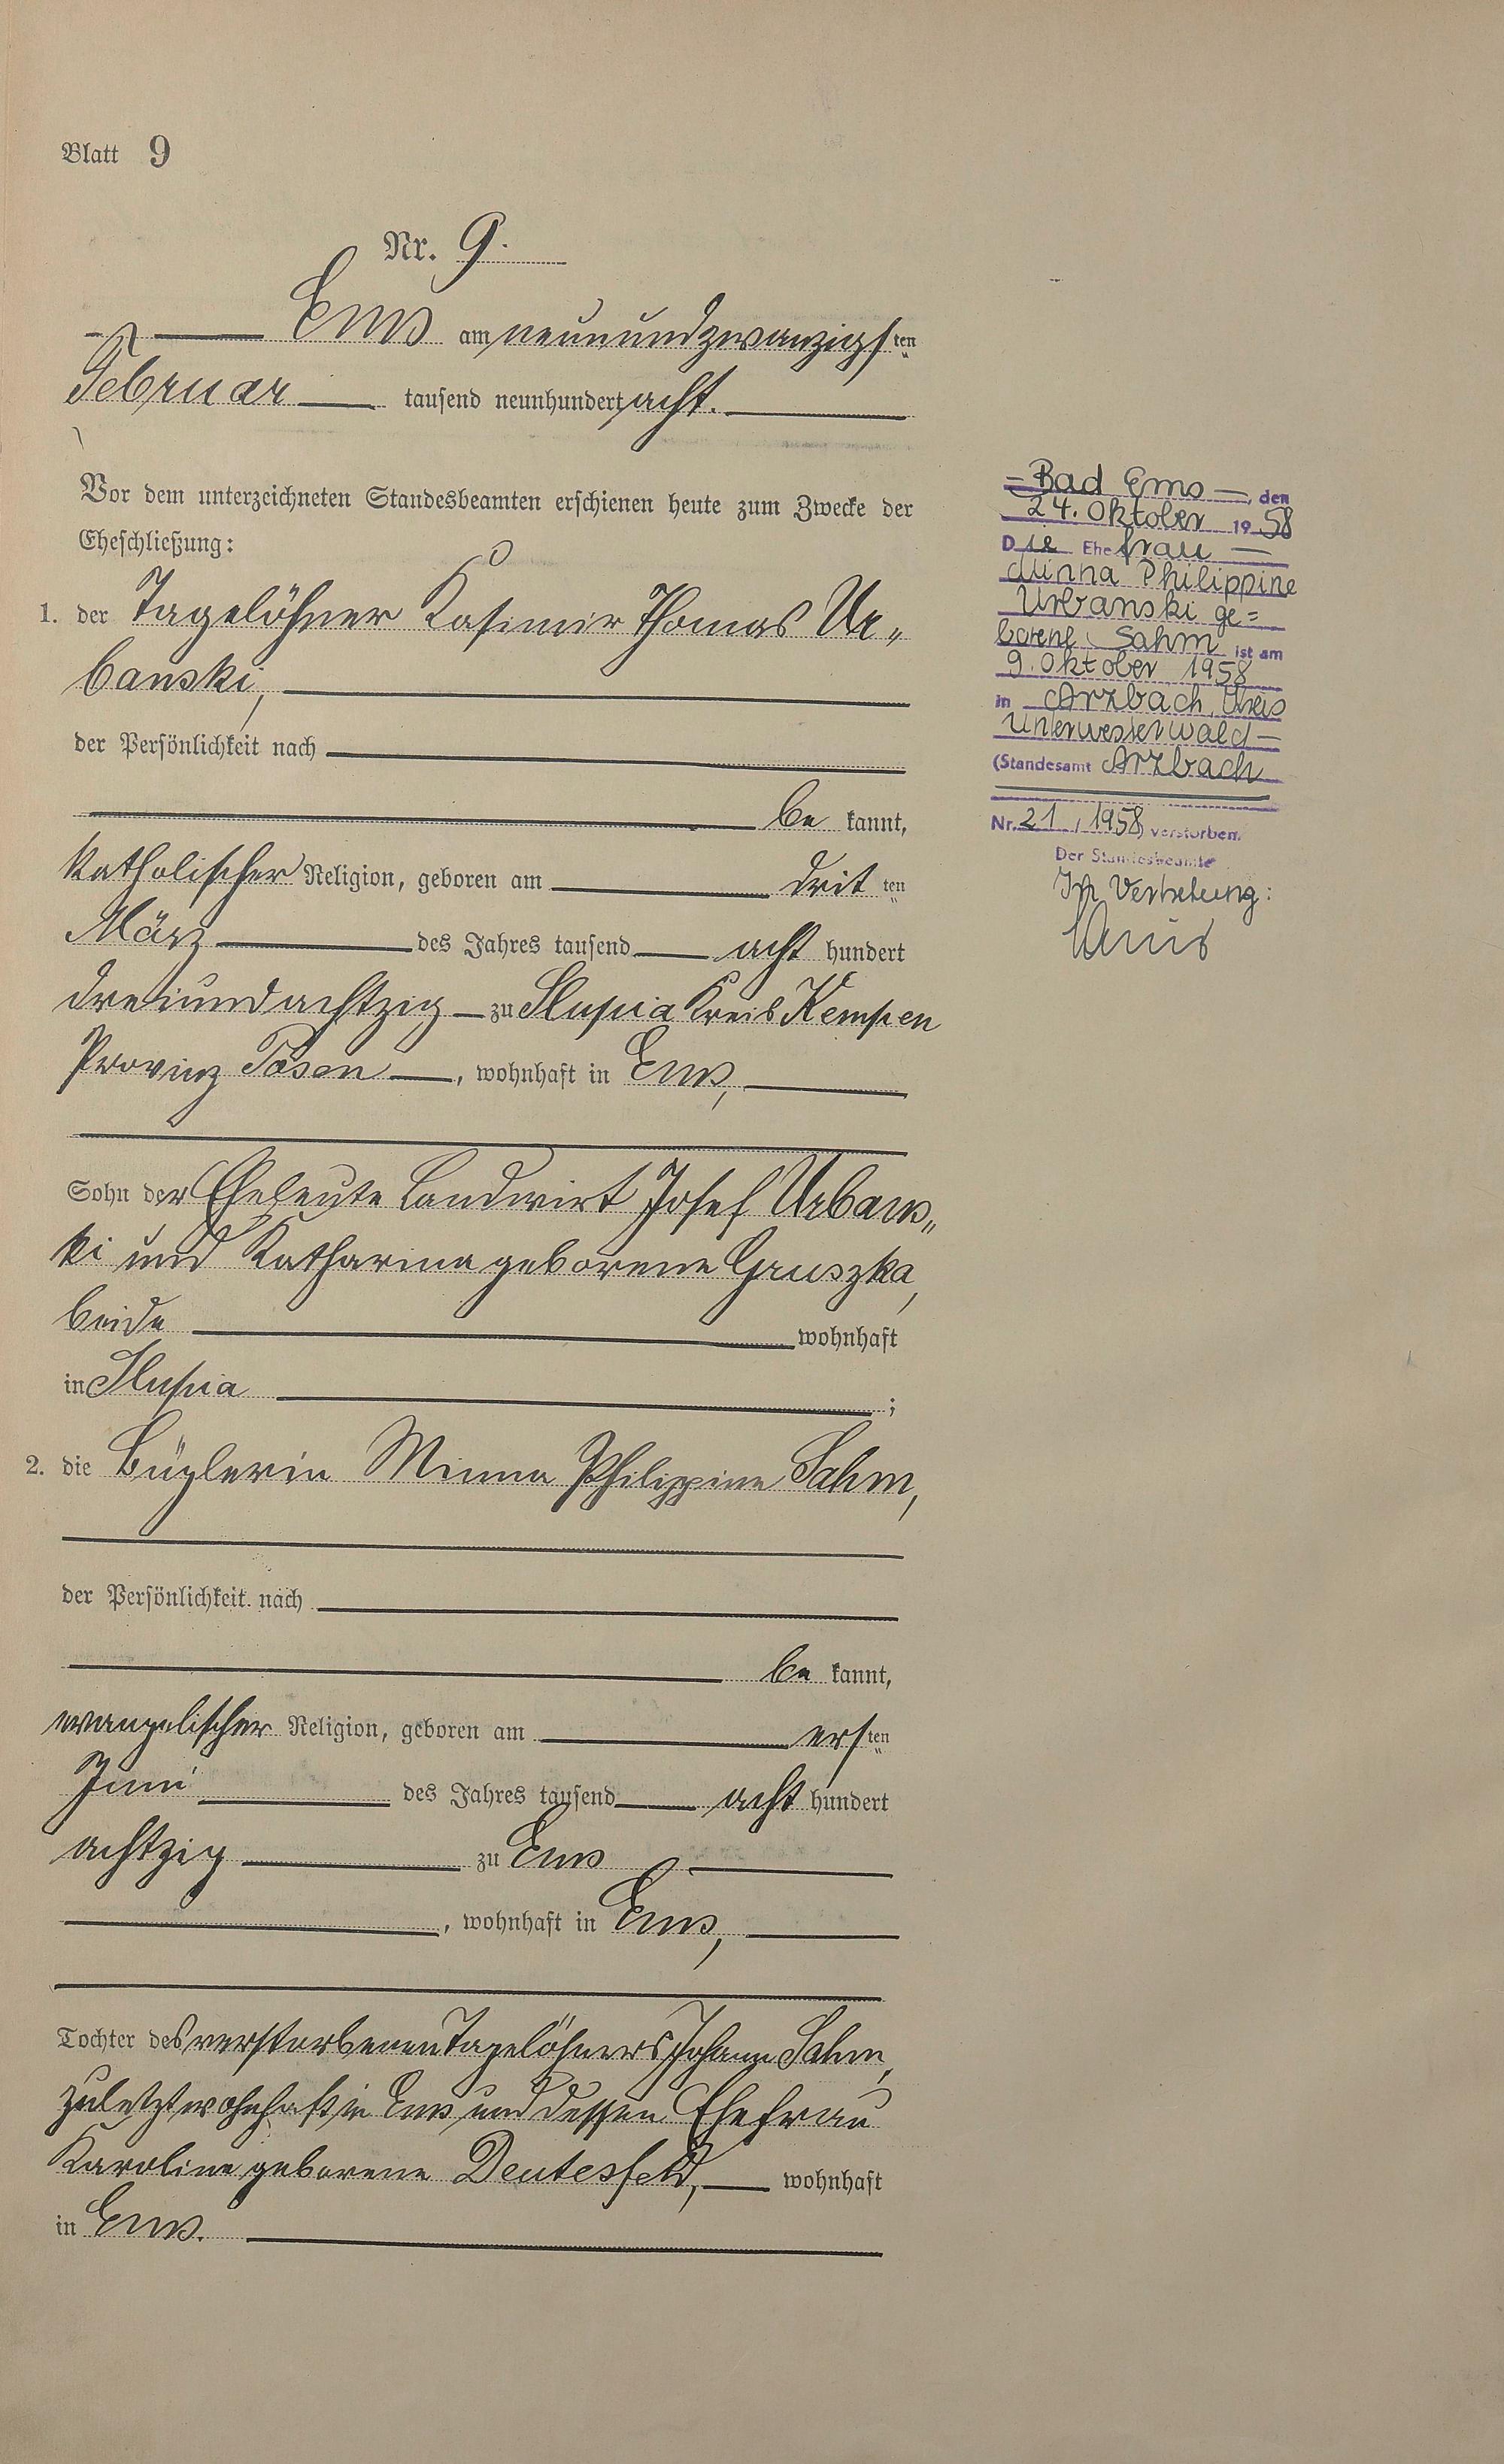 Blatt 9
Nr. 9.
Ems am neunundzwanzigsten
Februar tausend neunhundert acht.
Vor dem unterzeichneten Standesbeamten erschienen heute zum Zwecke der
Eheschließung:
1. der Tagelöhner Kasimir Thomas Ur„
banski,
der Persönlichkeit nach
be kannt,
katholischer Religion, geboren am dritten
März des Jahres tausend acht hundert
dreiundachtzig zu Slupia Kreis Kempen
Provinz Posen, wohnhaft in Ems,
Sohn der Eheleute Landwirt Josef Urbans„
ki und Katharina geborene Gruszka,
beide wohnhaft
in Slupia;
2. die Büglerin Minna Philippine Sahm,
der Persönlichkeit nach
be kannt,
evangelischer Religion, geboren am ersten
Juni des Jahres tausend acht hundert
achtzig zu Ems
, wohnhaft in Ems,
Tochter des verstorbenen Tagelöhners Johann Sahm,
zuletzt wohnhaft in Ems und dessen Ehefrau
Karoline geborene Deutesfeld, wohnhaft
in Ems.
Bad Ems, den
24. Oktober 1958
Die Ehefrau
Minna Philippine
Urbanski ge=
borene Sahm ist am
9. Oktober 1958
in Arzbach, Kreis
Unterwesterwald
(Standesamt Arzbach
Nr. 21, 1958) verstorben.
Der Standesbeamte
In Vertretung: